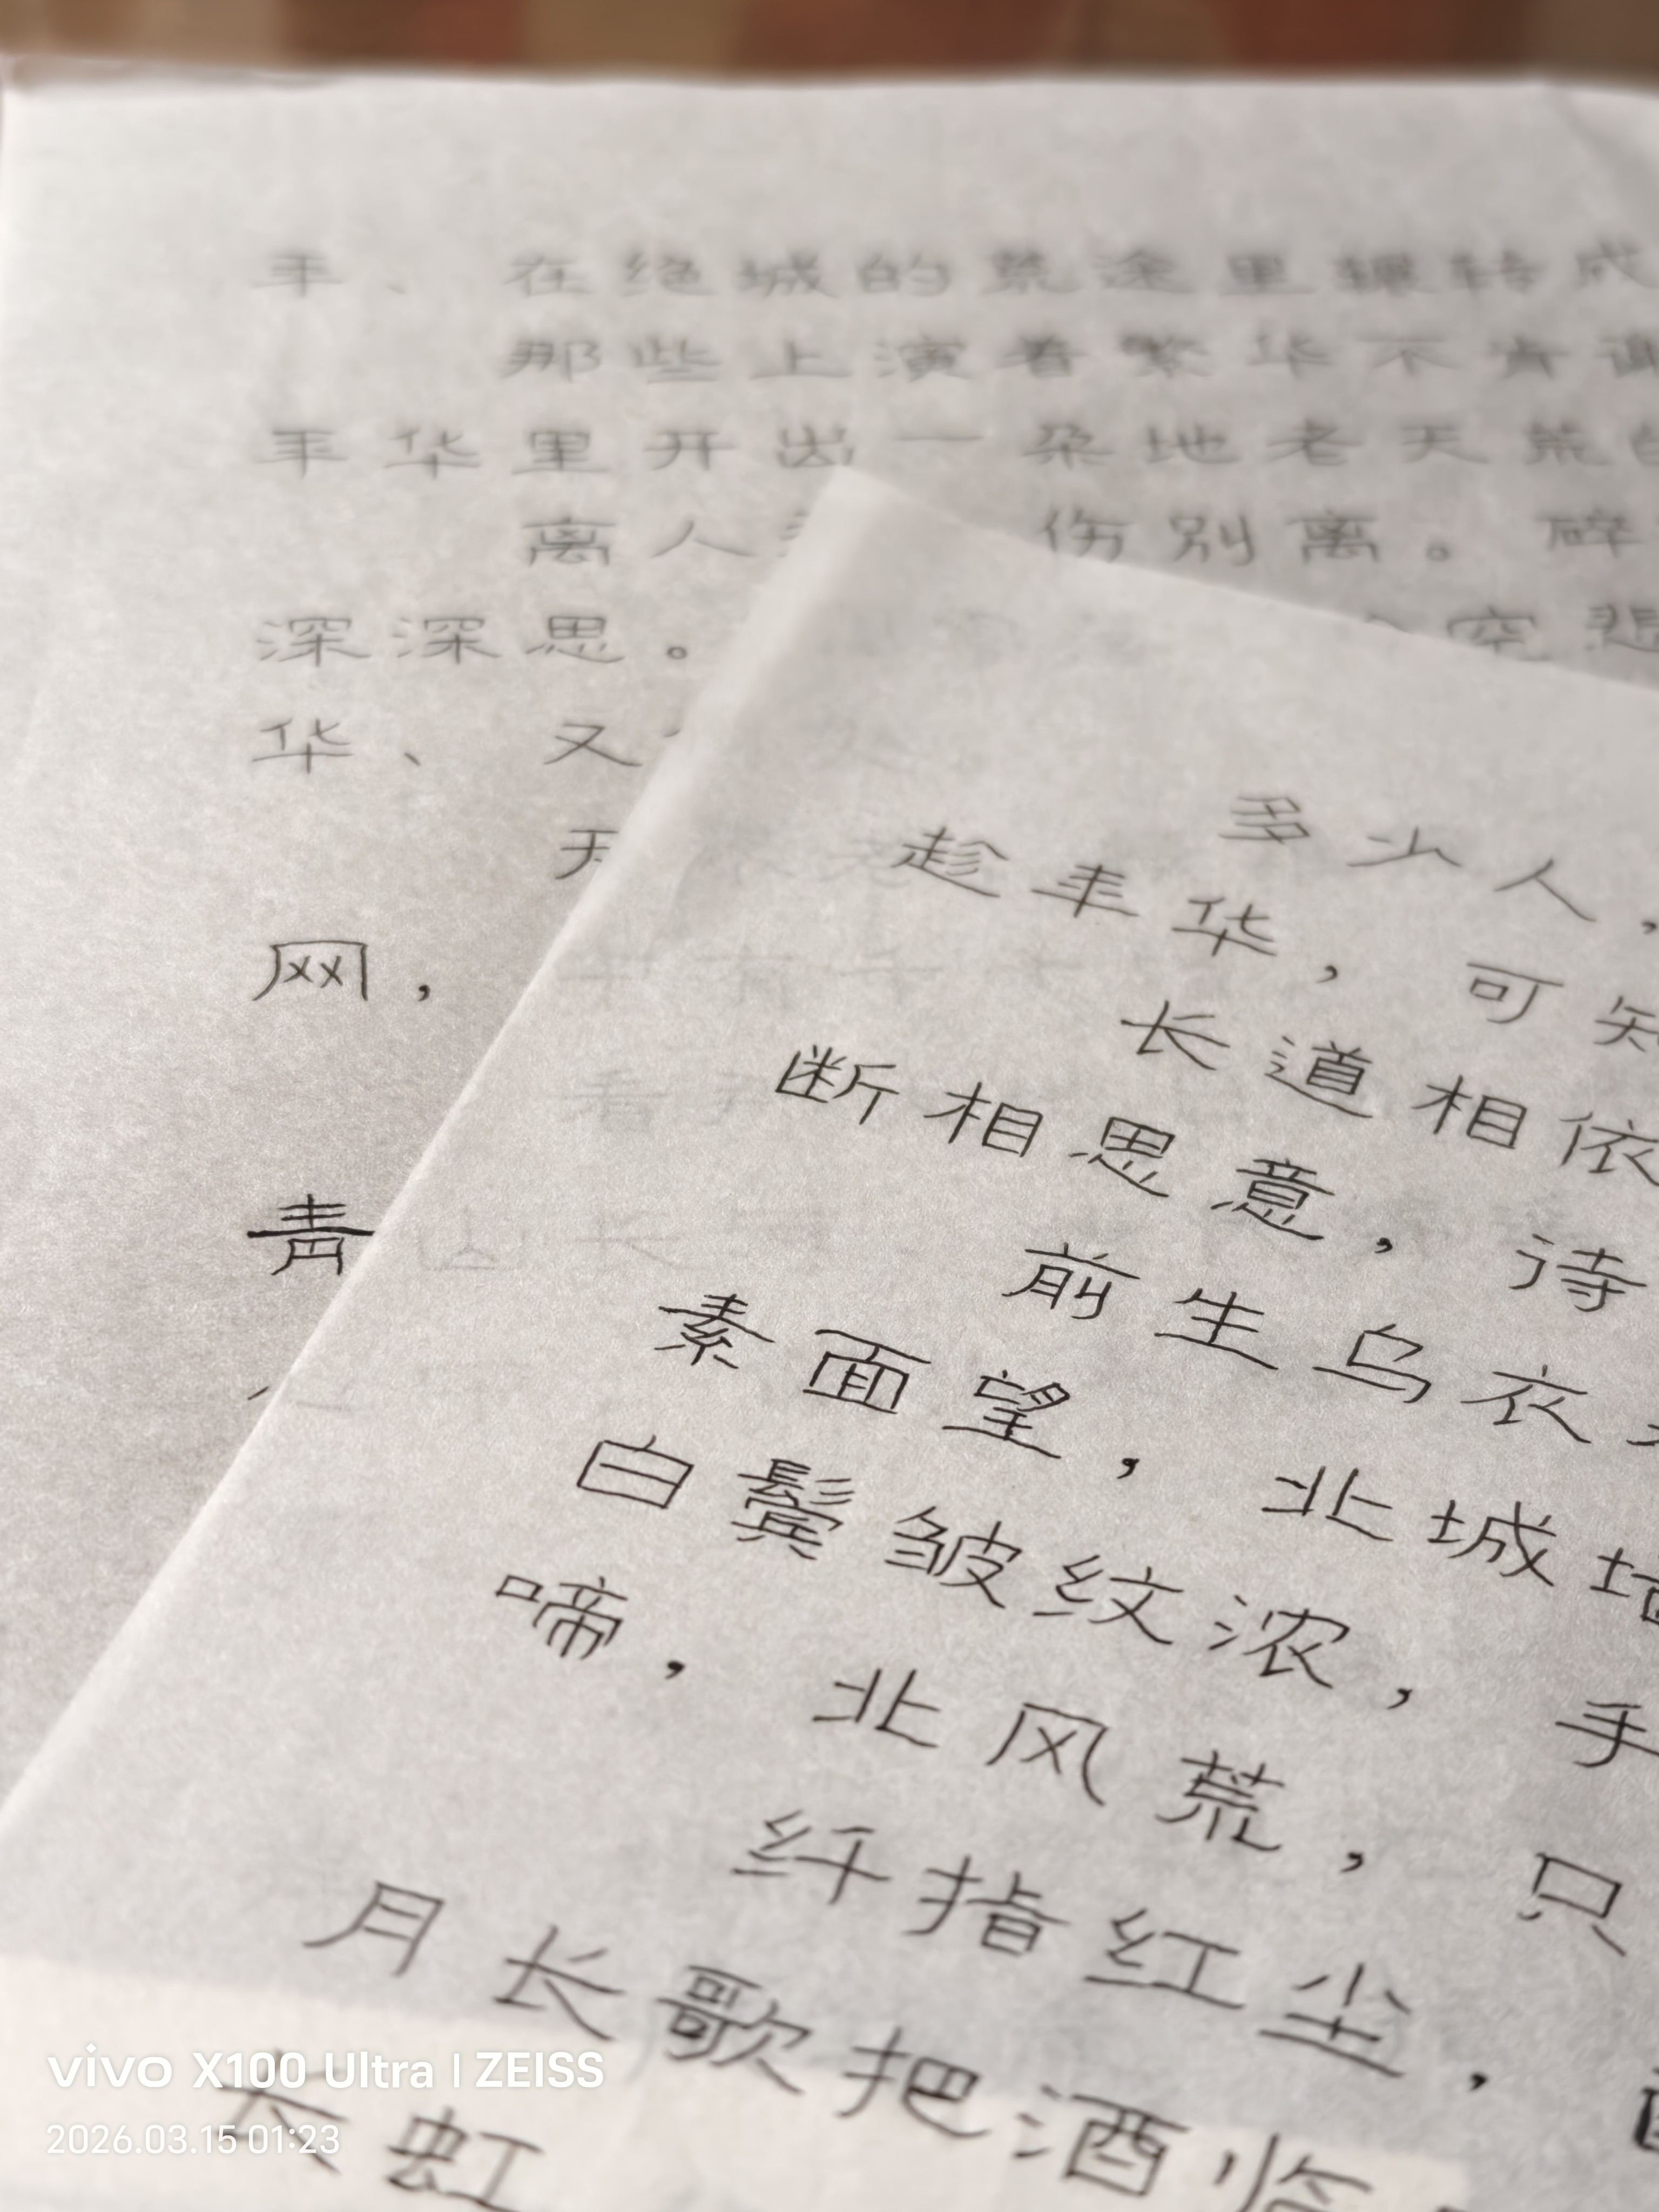 年、在绝城的荒途里辗转成
那些上演着繁华不肯谢
年华里开出一朵地老天荒的
离人 伤别离。碎
深深思。 空悲
华、又
网，
青
多少人，
趁年华，可知
长道相依
断相思意，待
前生乌衣
素面望，北城墙
白鬓皱纹浓，手
啼，北风荒，只
纤指红尘，
月长歌把酒临
长虹
vivo X100 Ultra | ZEISS
2026.03.15 01:23